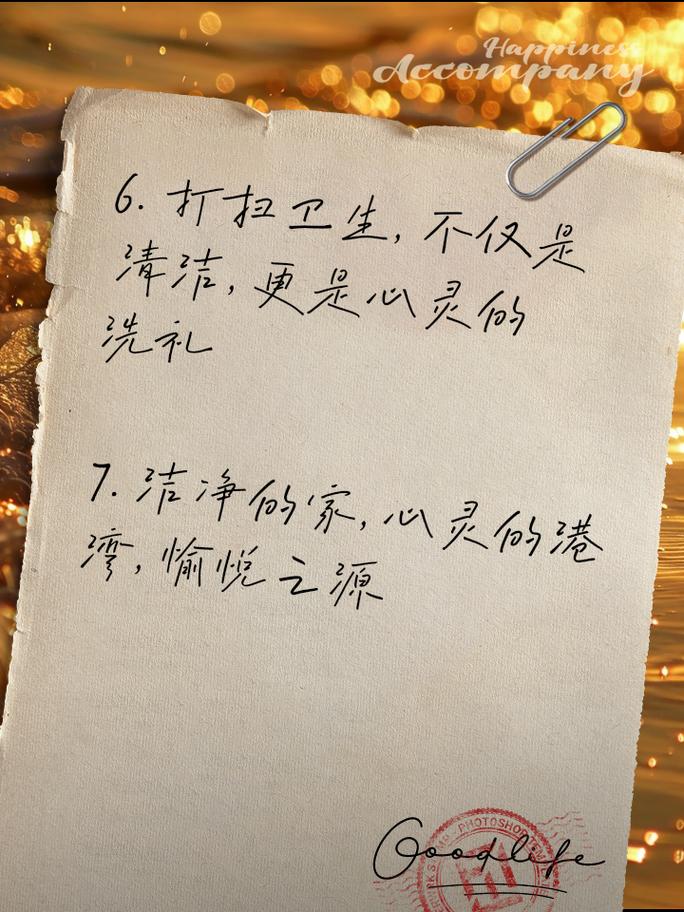 Happiness
Accompany
6. 打扫卫生, 不仅是
清洁, 更是心灵的
洗礼
7. 洁净的家, 心灵的港
湾, 愉悦之源
PHOTOSHOP
Goodlife